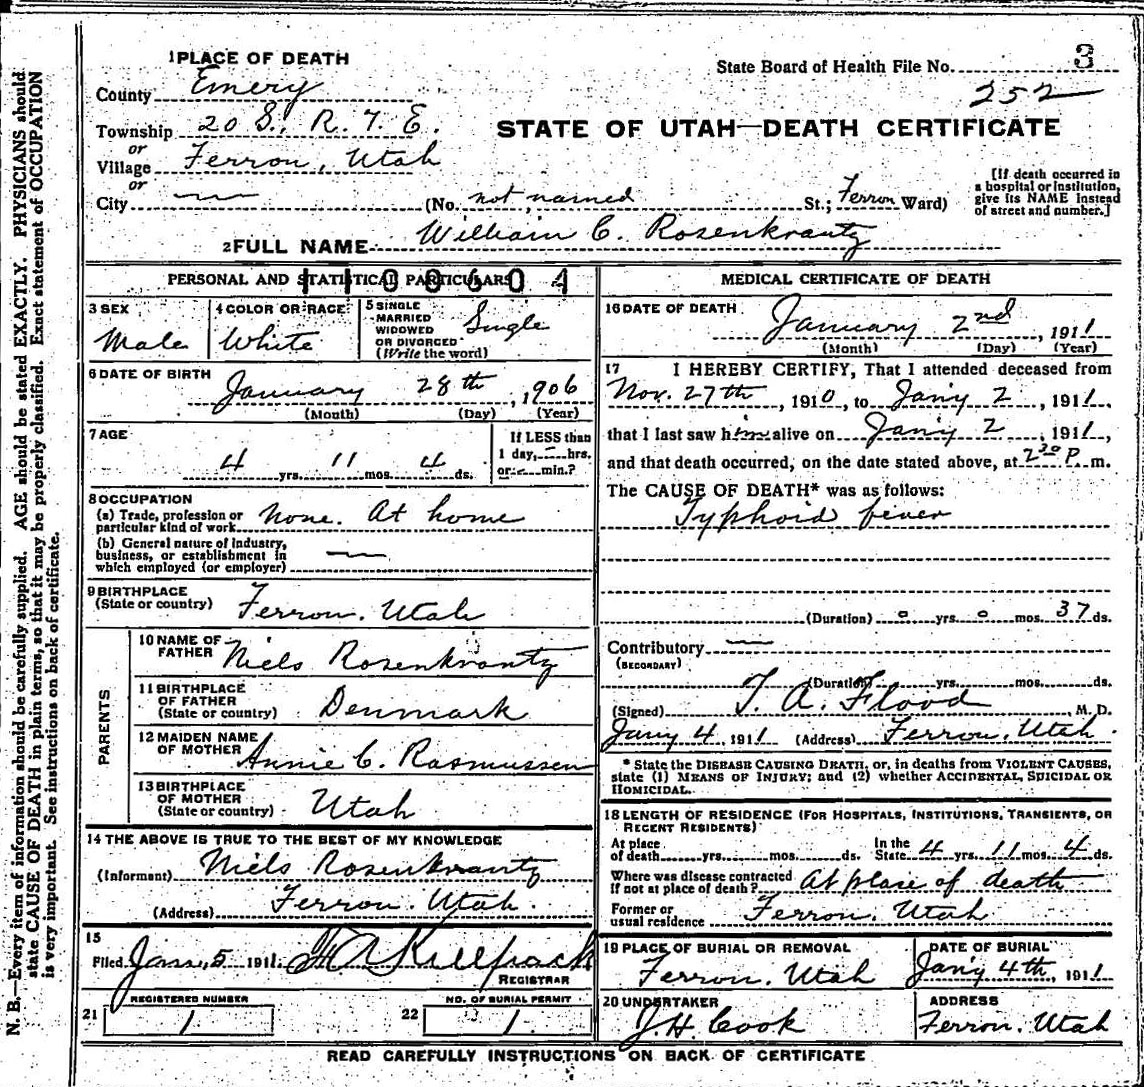 N. B.—Every item of information should be carefully supplied. AGE should be stated EXACTLY. PHYSICIANS should
state CAUSE OF DEATH in plain terms, so that it may be properly classified. Exact statement of OCCUPATION
is very important. See instructions on back of certificate.
1 PLACE OF DEATH
County Emery
Township 20 S., R. 7 E.
or
Village Ferron, Utah
or
City —
State Board of Health File No. 3
252
STATE OF UTAH—DEATH CERTIFICATE
(No. not named St.; Ferron Ward)
[If death occurred in
a hospital or institution,
give its NAME instead
of street and number.]
2 FULL NAME William C. Rosenkrantz
PERSONAL AND STATISTICAL PARTICULARS
3 SEX
Male
4 COLOR OR RACE
White
5 SINGLE
MARRIED
WIDOWED
OR DIVORCED
(Write the word)
Single
6 DATE OF BIRTH
January 28th, 1906
(Month) (Day) (Year)
7 AGE
4 yrs. 11 mos. 4 ds.
If LESS than
1 day, — hrs.
or — min.?
8 OCCUPATION
(a) Trade, profession or
particular kind of work None. At home
(b) General nature of industry,
business, or establishment in
which employed (or employer) —
9 BIRTHPLACE
(State or country) Ferron. Utah
PARENTS
10 NAME OF
FATHER Niels Rosenkrantz
11 BIRTHPLACE
OF FATHER
(State or country) Denmark
12 MAIDEN NAME
OF MOTHER Annie C. Rasmussen
13 BIRTHPLACE
OF MOTHER
(State or country) Utah
14 THE ABOVE IS TRUE TO THE BEST OF MY KNOWLEDGE
(Informant) Niels Rosenkrantz
(Address) Ferron. Utah.
15
Filed Jan. 5 1911 F A Killpack
REGISTRAR
21 REGISTERED NUMBER
1
22 NO. OF BURIAL PERMIT
1
MEDICAL CERTIFICATE OF DEATH
16 DATE OF DEATH
January 2nd, 1911
(Month) (Day) (Year)
17 I HEREBY CERTIFY, That I attended deceased from
Nov. 27th, 1910, to Jan'y 2, 1911,
that I last saw him alive on Jan'y 2, 1911,
and that death occurred, on the date stated above, at 2 30 P. m.
The CAUSE OF DEATH* was as follows:
Typhoid fever
(Duration) 0 yrs. 0 mos. 37 ds.
Contributory —
(SECONDARY)
(Duration) yrs. mos. ds.
(Signed) T. A. Flood M. D.
Jan'y 4, 1911 (Address) Ferron. Utah.
* State the DISEASE CAUSING DEATH, or, in deaths from VIOLENT CAUSES,
state (1) MEANS OF INJURY; and (2) whether ACCIDENTAL, SUICIDAL OR
HOMICIDAL.
18 LENGTH OF RESIDENCE (FOR HOSPITALS, INSTITUTIONS, TRANSIENTS, OR
RECENT RESIDENTS)
At place
of death yrs. mos. ds. In the
State 4 yrs. 11 mos. 4 ds.
Where was disease contracted
if not at place of death? At place of death
Former or
usual residence Ferron. Utah
19 PLACE OF BURIAL OR REMOVAL
Ferron. Utah
DATE OF BURIAL
Jan'y 4th, 1911
20 UNDERTAKER
J H. Cook
ADDRESS
Ferron. Utah
READ CAREFULLY INSTRUCTIONS ON BACK OF CERTIFICATE